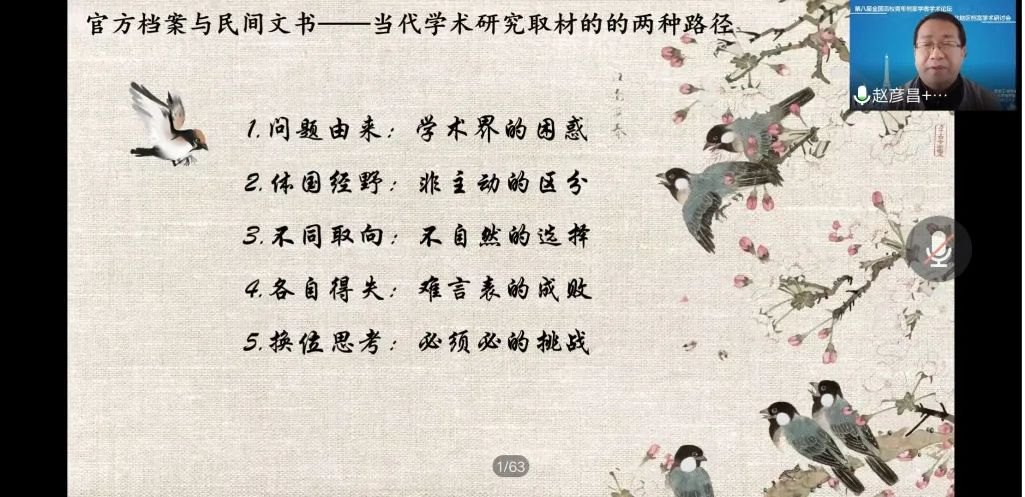 官方档案与民间文书——当代学术研究取材的的两种路径
第八届全国高校青年档案学者学术论坛
赵彦昌+…
1.问题由来：学术界的困惑
2.体国经野：非主动的区分
3.不同取向：不自然的选择
4.各自得失：难言表的成败
5.换位思考：必须必的挑战
1/63